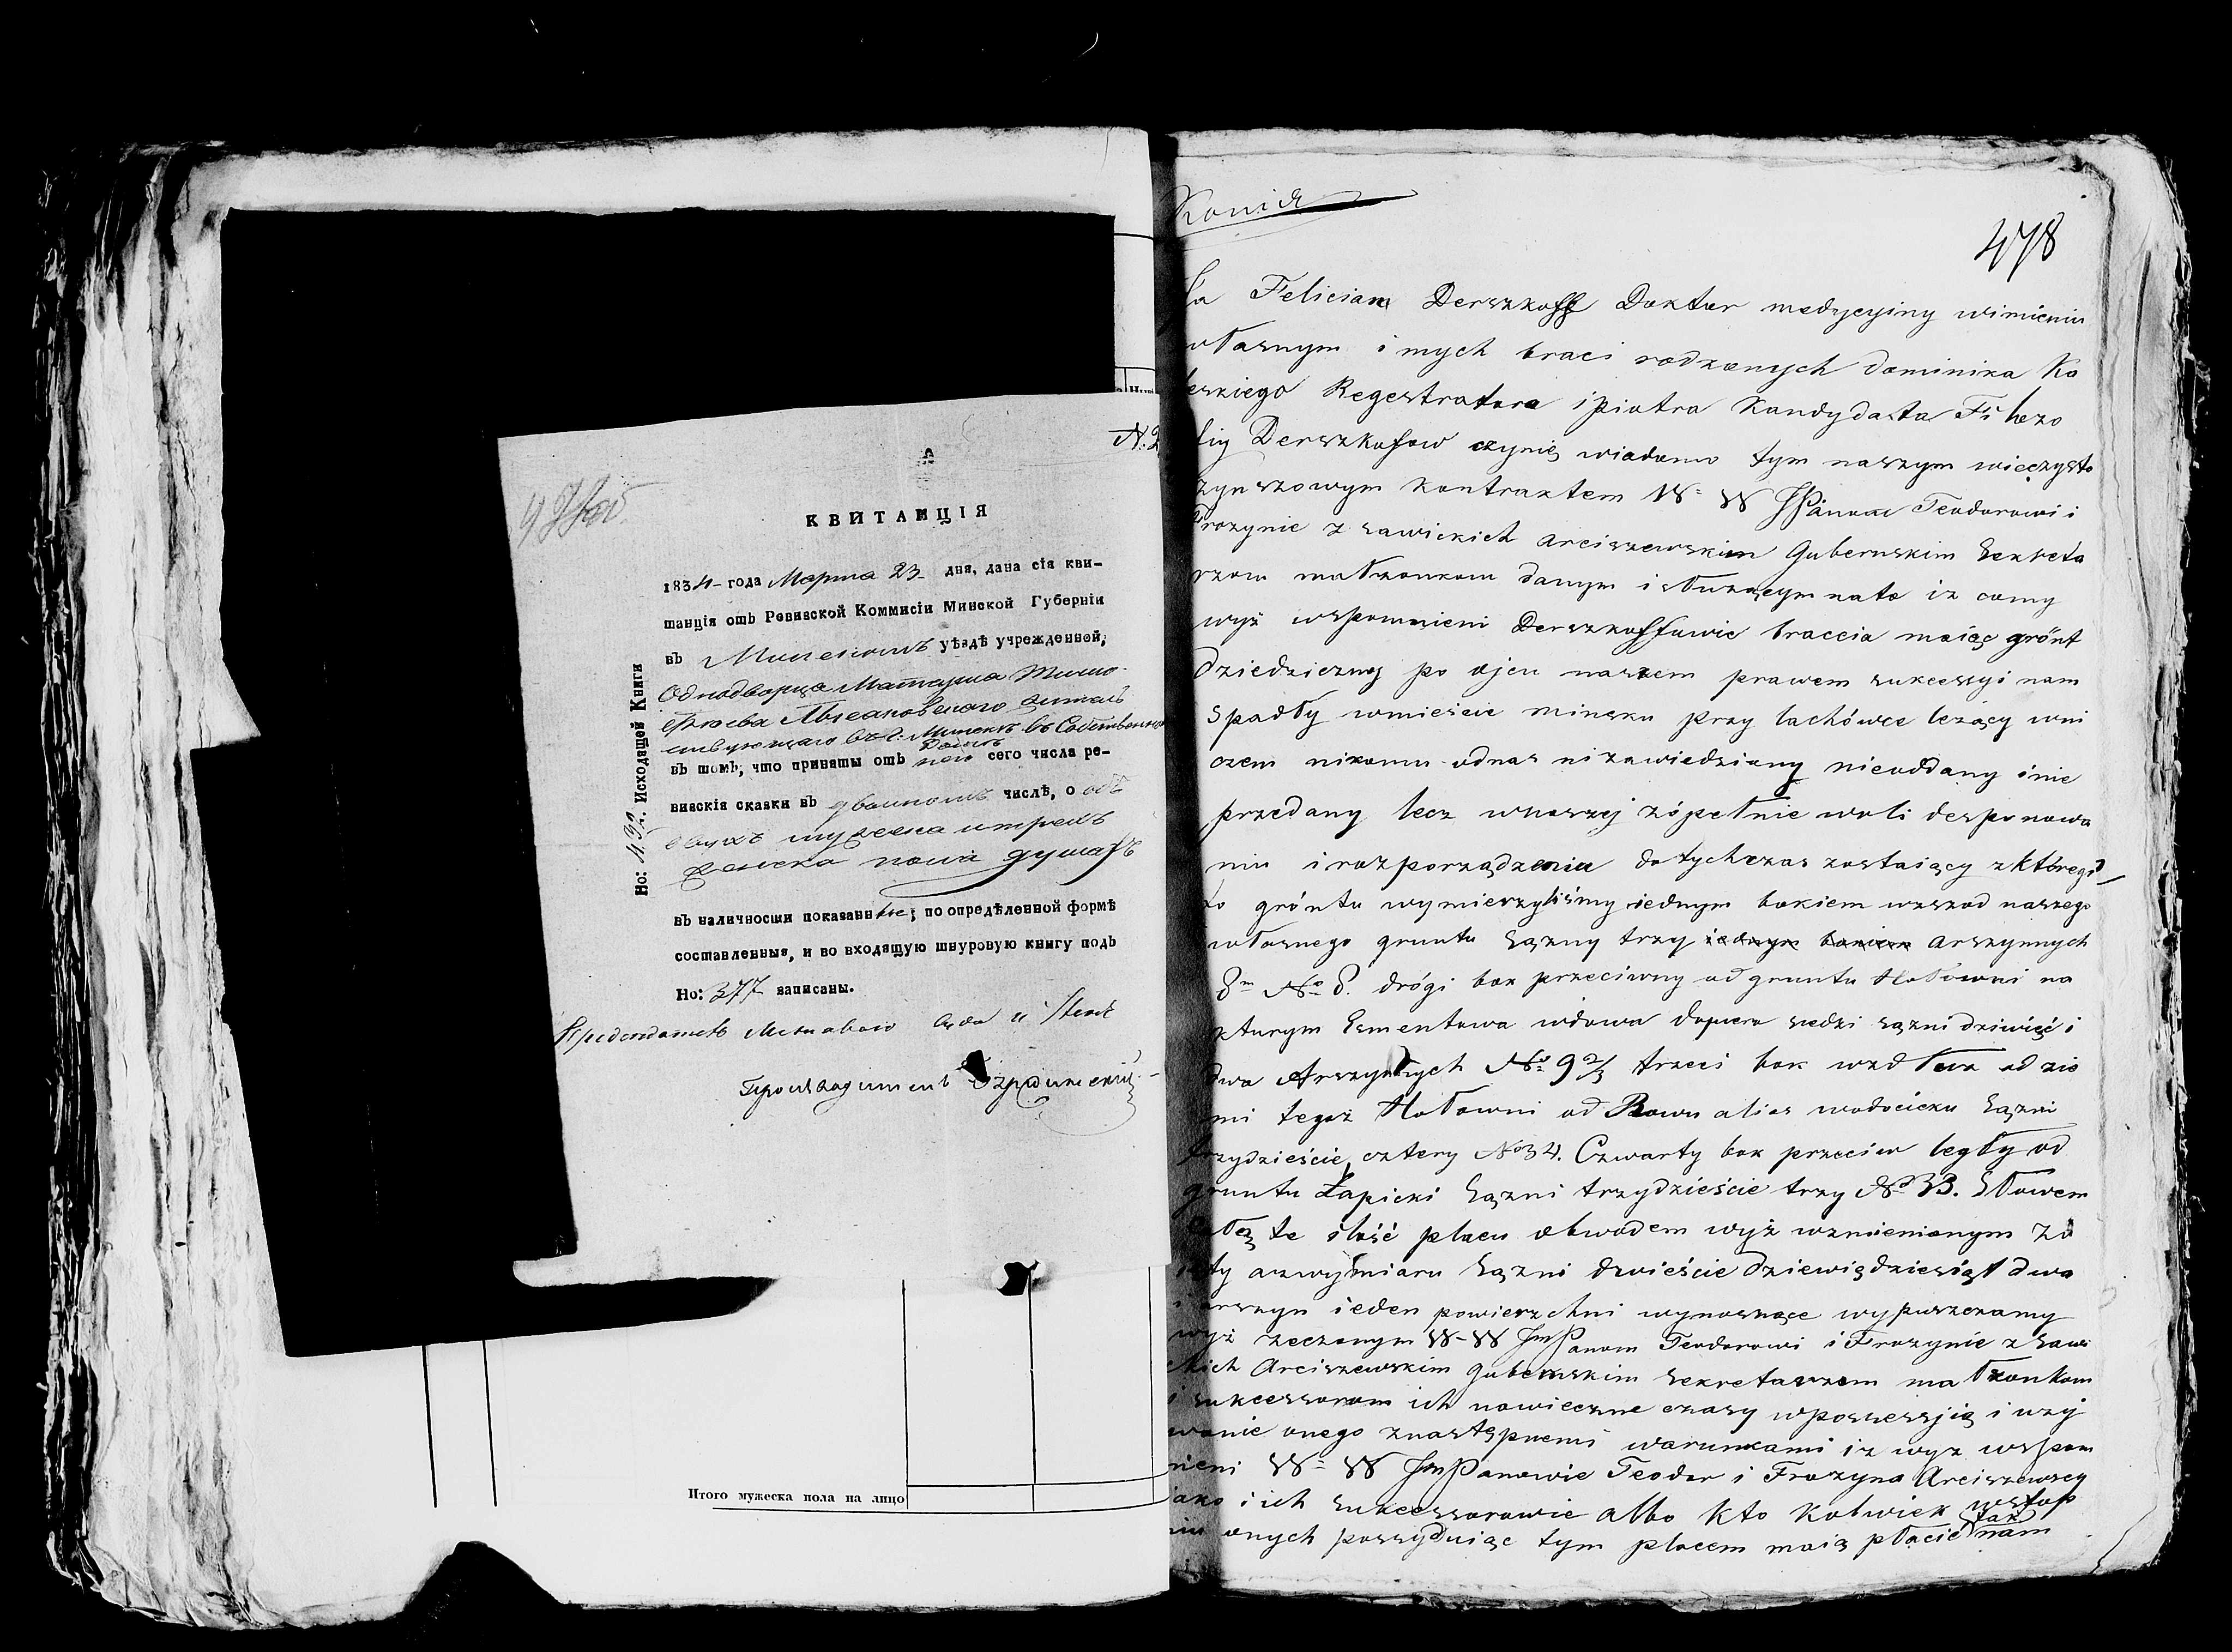 N. 2
КВИТАНЦІЯ
1834 года Марта 23 дня, дана сія кви-
танція отъ Ревизской Коммисіи Минской Губерніи
въ Минскомъ уѣздѣ учрежденной,
Однодворца Матеуша
въ томъ, что приняты отъ него сего числа ре-
визскія сказки въ двойномъ числѣ, о
двухъ мужеска и трехъ
женска пола душахъ
въ наличности показанные, по опредѣленной формѣ
составленныя, и во входящую шнуровую книгу подъ
Но: 377 записаны.
Но: 492. Исходящей Книги
Итого мужеска пола на лицо
Копія
478
Ja Felician Derszkoff Doktor medycyiny wimieniu
własnym i mych braci rodzonych Dominika Ko
leskiego Regestratora i Piotra Kandydata Filozo
fiy Derszkofow czynię wiadomo tym naszym wieczysto
czynszowym kontraktem W= W JPanom Teodorowi i
Frozynie z Sawickich Arciszewskim Gubernskim Sekreta
rzom małżonkom danym i służącym na to iż my
wyż wspomnieni Derszkoffowie braccia maiąc grónt
dziedziczny po ojcu naszem prawem sukcessyi nam
spadły wmieście Minsku przy Lachówce leżący wni
czem nikomu odnas nizawiedziony nieoddany inie
przedany lecz wnaszej zópełnie woli desponowa
niu i rozporządzeniu dotychczas zostaiący zktórego
to gróntu wymierzyliśmy iednym bokiem wzszod naszego
własnego gruntu Sążny trzy iednym bokiem arszynnych
8m No 8. drógi bok przeciwny od gruntu Hołowni na
kturym Ementowa wdowa dopiero siedzi sążni dziwięć i
dwa Arszynnych No 9 2/3 trzeci bok wzdłuż od zie
mi tegoż Hołowni od Rowu alias wodocieku Sążni
trzydzieście cztery No 34. Czwarty bok przeciw legły od
gruntu Łapicki Sążni trzydzieście trzy No 33. Słowem
całą te ilość placu obwodem wyż wzmienionym za
ięty a zwymiaru Sążni dwieście dziewiędziesiąt dwa
i arszyn ieden powierzchni wynoszące wypuszczamy
wyż rzeczonym W-W JmPanom Teodorowi i Frozynie z Sawi
ckich Arciszewskim Gubernskim Sekretarzom małżonkom
i sukcessorom ich nawieczne czasy wpossessjią i uży
wanie onego znastępnemi warunkami iż wyż wspom
nieni W= W JmPanowie Teodor i Frozyna Arciszewscy
iako i ich sukcessorowie albo kto kolwiek wstop
niu onych possyduiąc tym placem maią płacić tak nam